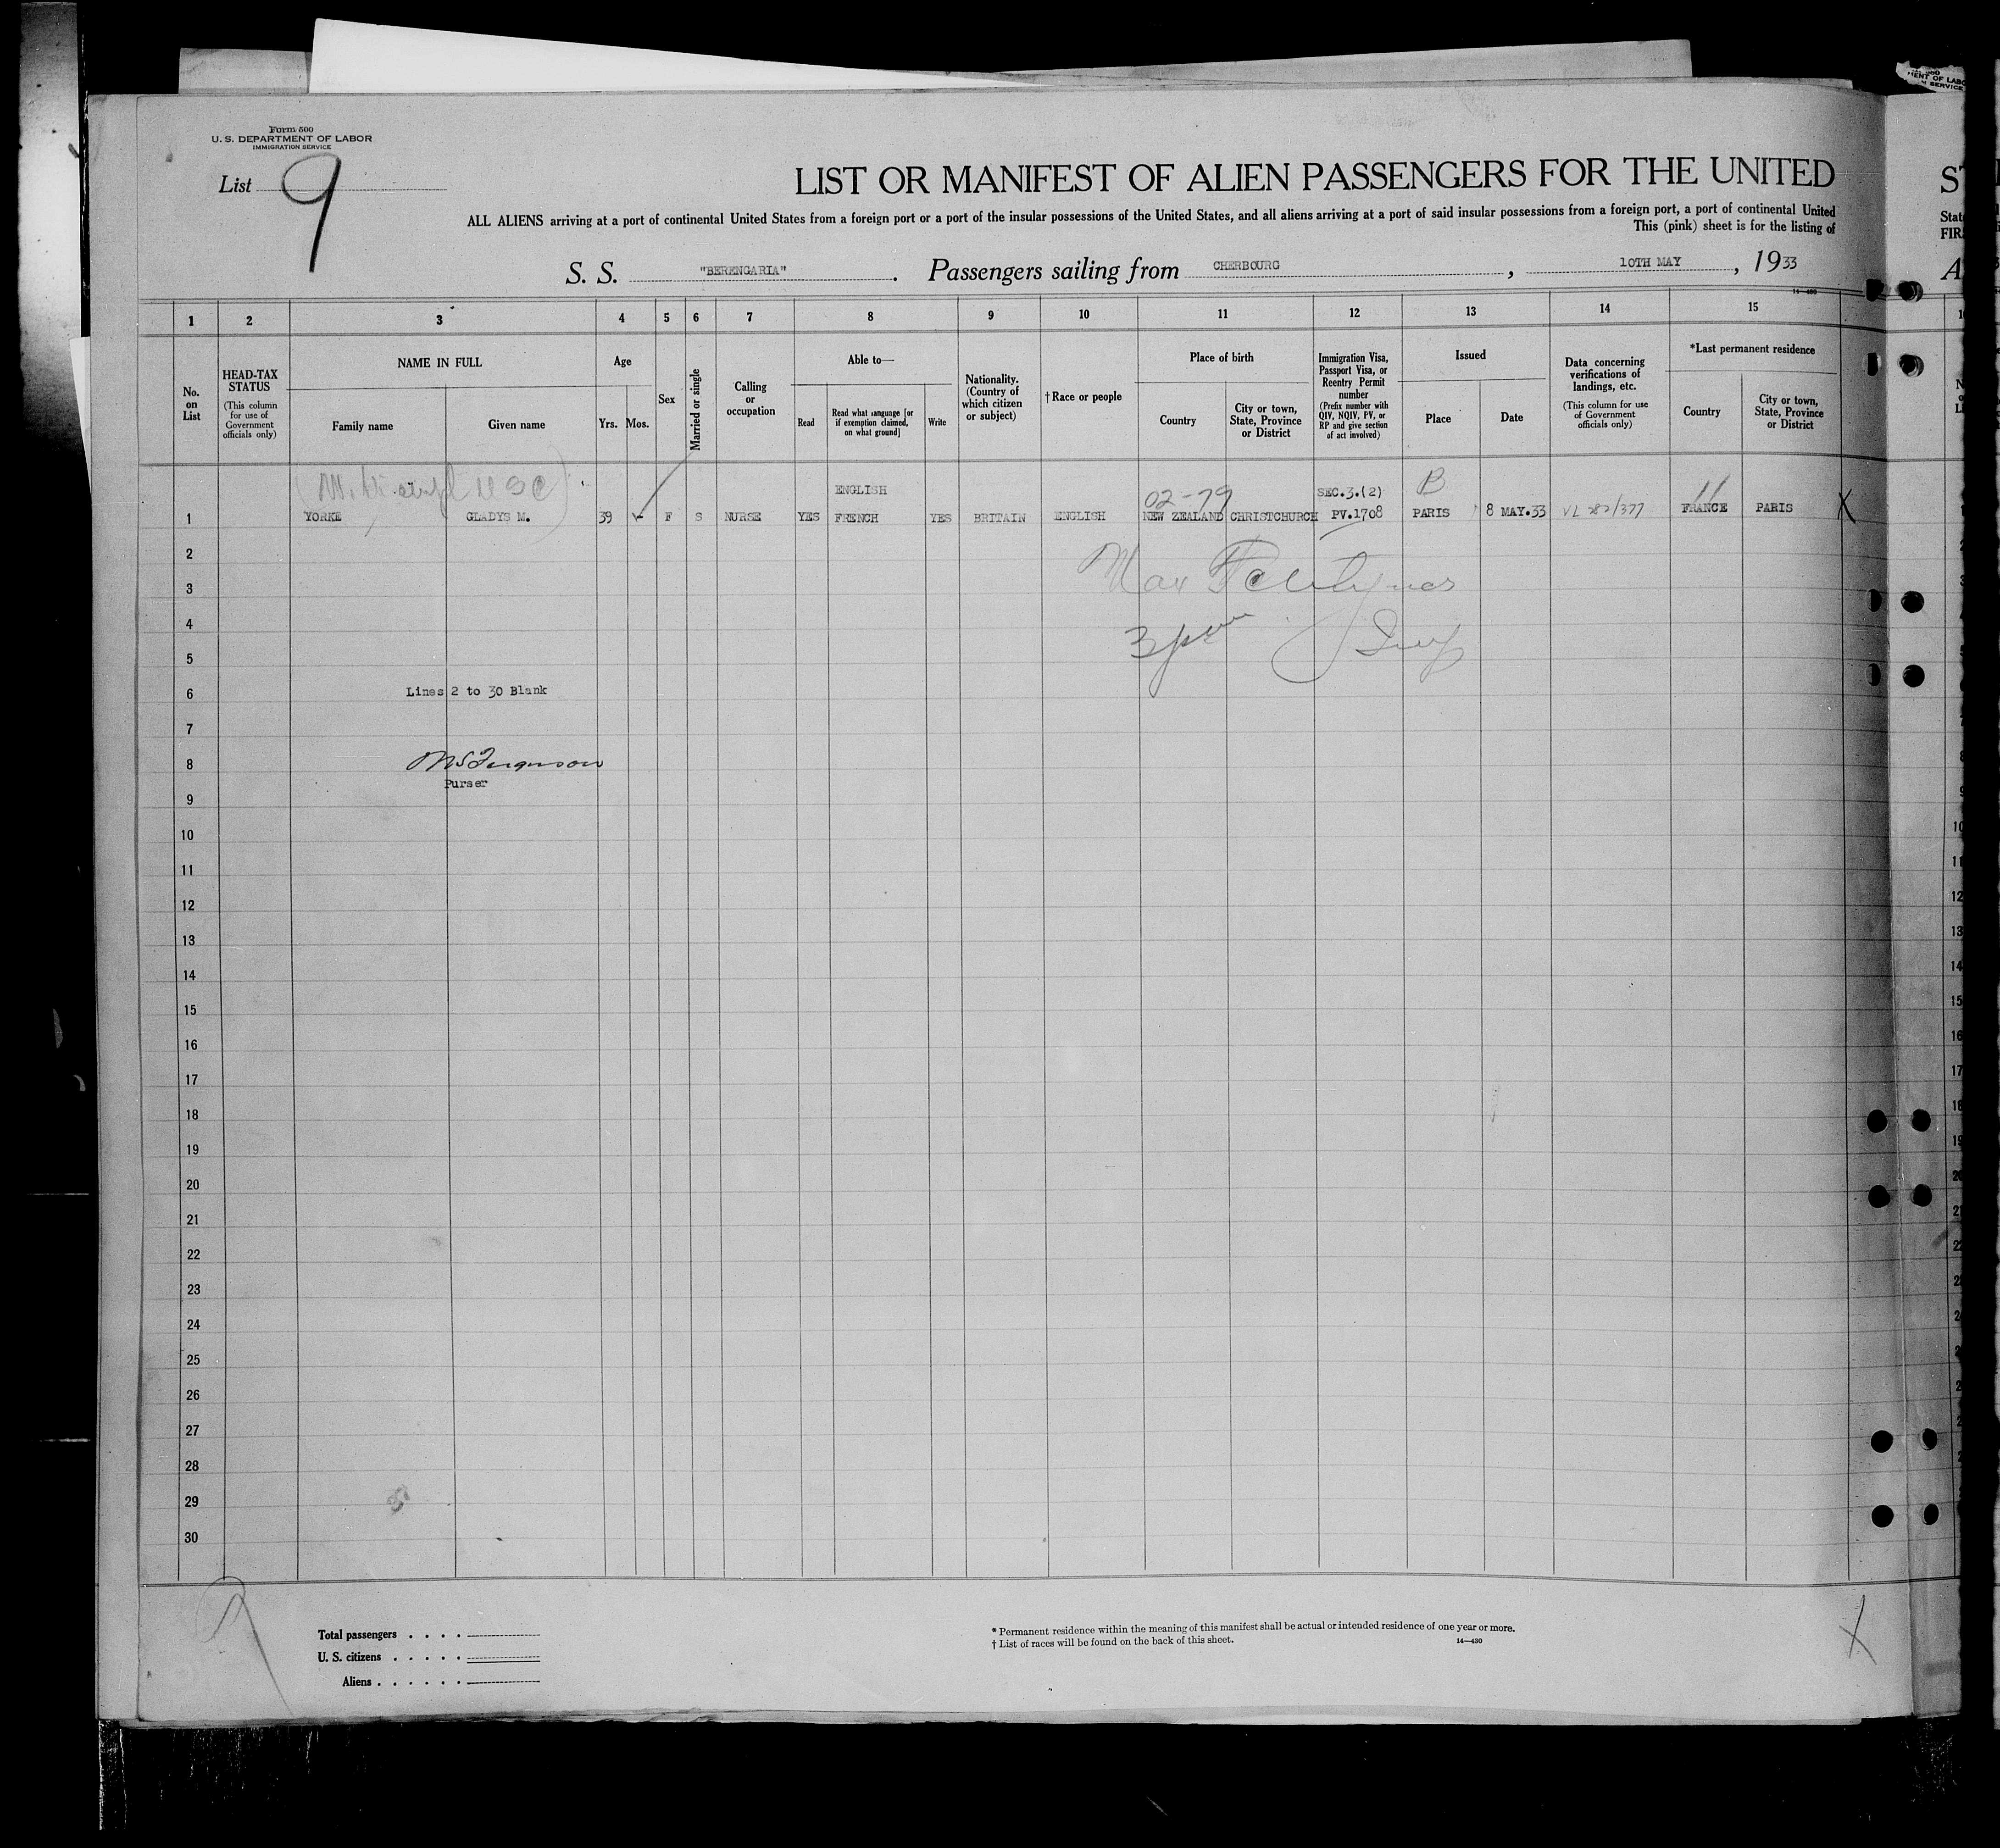 Form 500
U. S. DEPARTMENT OF LABOR
IMMIGRATION SERVICE
List 9
LIST OR MANIFEST OF ALIEN PASSENGERS FOR THE UNITED
ALL ALIENS arriving at a port of continental United States from a foreign port or a port of the insular possessions of the United States, and all aliens arriving at a port of said insular possessions from a foreign port, a port of continental United
This (pink) sheet is for the listing of
S. S. "BERENGARIA". Passengers sailing from CHERBOURG, 10TH MAY, 1933
14—430
1 2 3 4 5 6 7 8 9 10 11 12 13 14 15
No. on List
HEAD-TAX STATUS
(This column for use of Government officials only)
NAME IN FULL
Family name
Given name
Age
Yrs. Mos.
Sex
Married or single
Calling or occupation
Able to—
Read
Read what language [or if exemption claimed, on what ground]
Write
Nationality. (Country of which citizen or subject)
†Race or people
Place of birth
Country
City or town, State, Province or District
Immigration Visa, Passport Visa, or Reentry Permit number
(Prefix number with QIV, NQIV, PV, or RP and give section of act involved)
Issued
Place
Date
Data concerning verifications of landings, etc.
(This column for use of Government officials only)
*Last permanent residence
Country
City or town, State, Province or District
ENGLISH 02-79 SEC.3.(2) B
1 YORKE GLADYS M. 39 - F S NURSE YES FRENCH YES BRITAIN ENGLISH NEW ZEALAND CHRISTCHURCH PV.1708 PARIS 8 MAY.33 FRANCE PARIS X
2
3
4
5
6 Lines 2 to 30 Blank
7
8 Ferguson
Purser
9
10
11
12
13
14
15
16
17
18
19
20
21
22
23
24
25
26
27
28
29
30
Total passengers
U. S. citizens
Aliens
* Permanent residence within the meaning of this manifest shall be actual or intended residence of one year or more.
† List of races will be found on the back of this sheet.
14—430
X